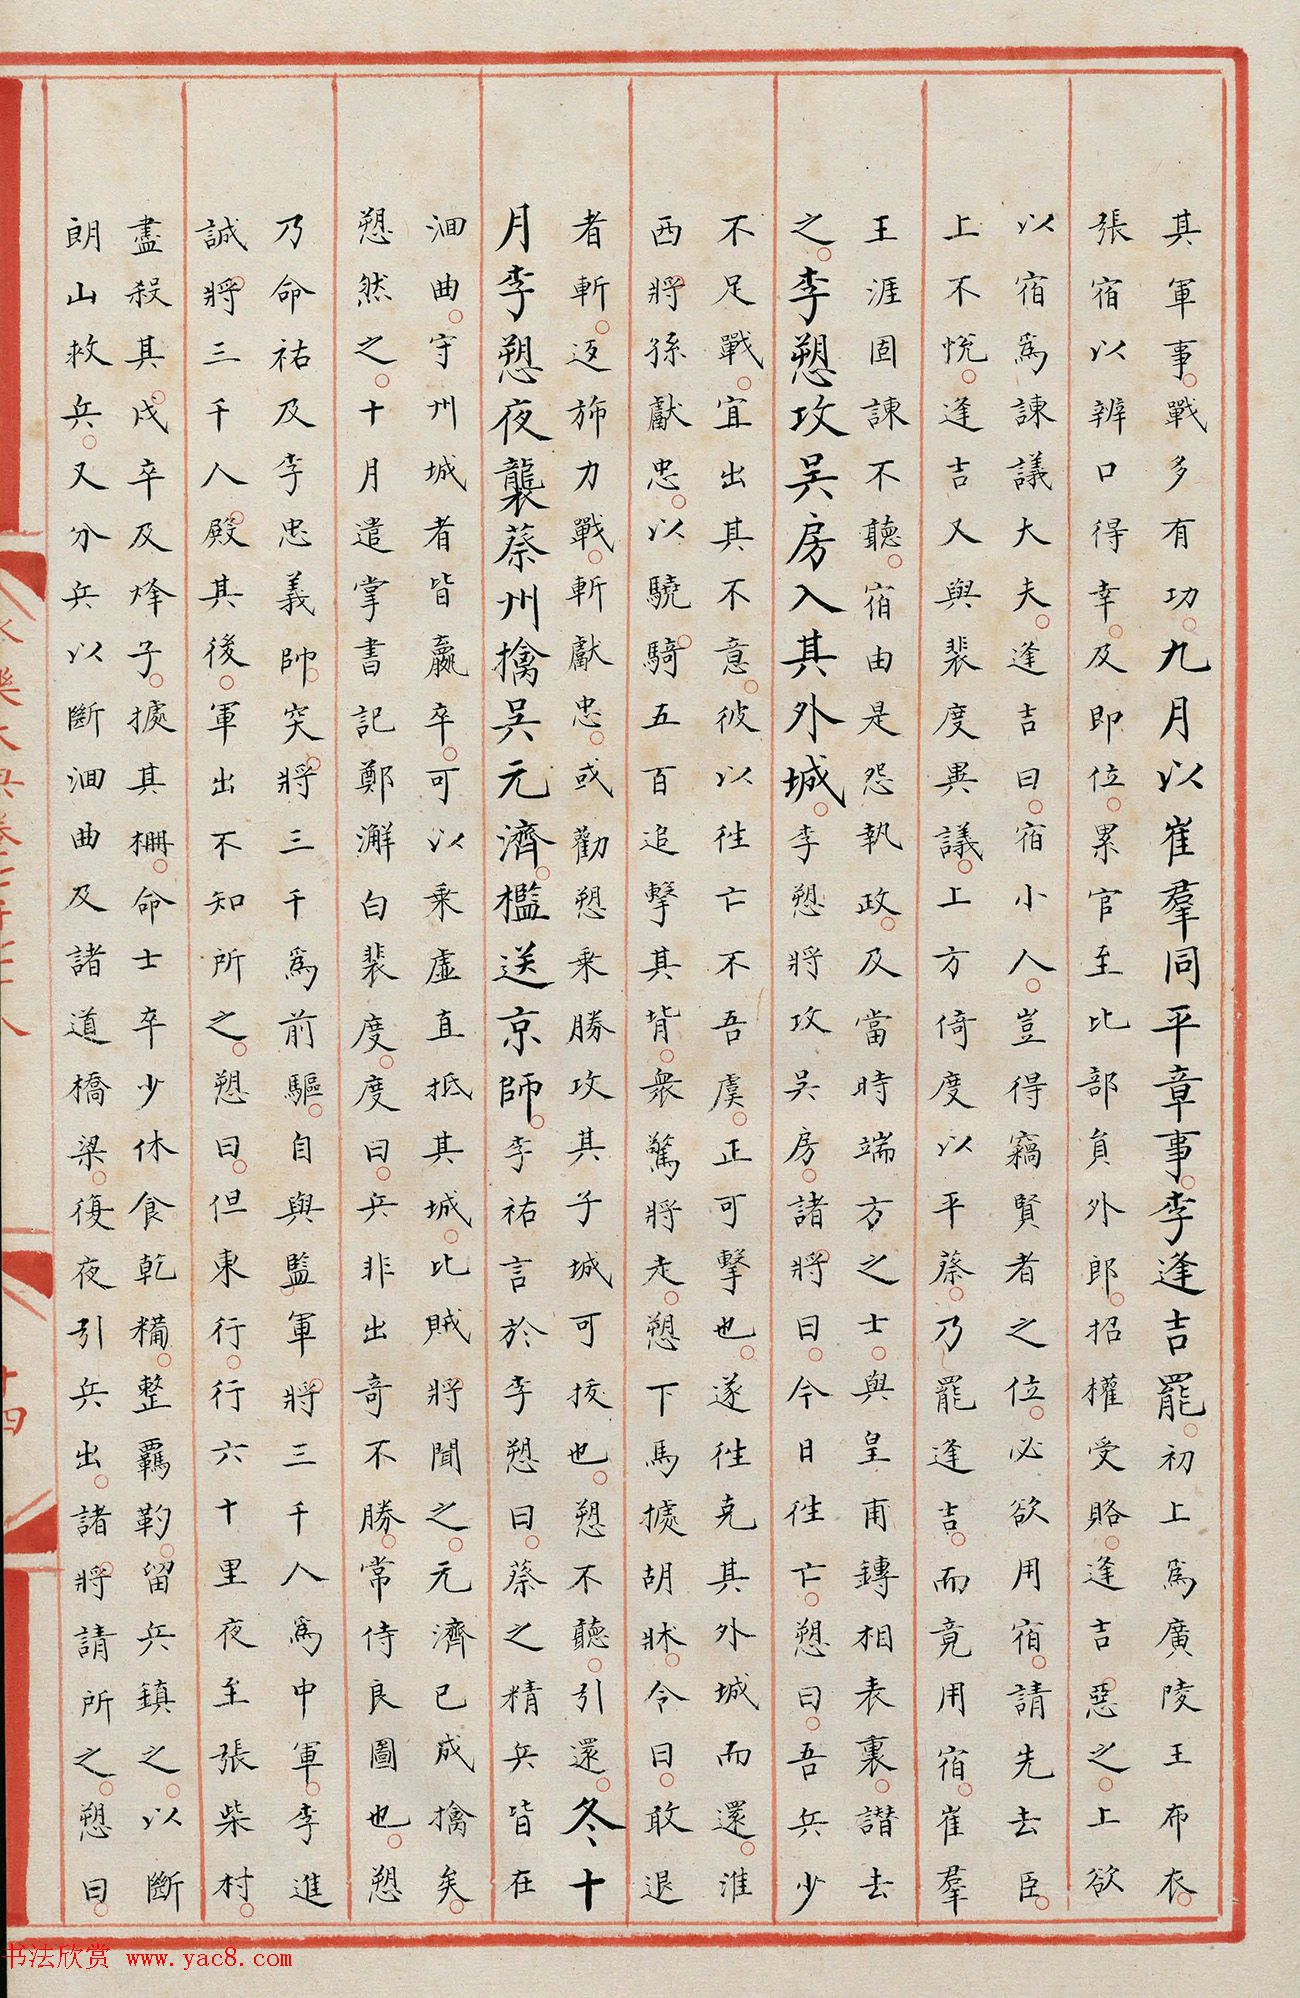 其軍事戰多有功九月以崔羣同平章事李逢吉罷初上爲廣陵王布衣
張宿以辨口得幸及即位累官至比部員外郎招權受賂逢吉惡之上欲
以宿爲諫議大夫逢吉曰宿小人豈得竊賢者之位必欲用宿請先去臣
上不悅逢吉又與裴度異議上方倚度以平蔡乃罷逢吉而竟用宿崔羣
王涯固諫不聽宿由是怨執政及當時端方之士與皇甫鏄相表裏譖去
之李愬攻吳房入其外城李愬將攻吳房諸將曰今日往亡愬曰吾兵少
不足戰宜出其不意彼以往亡不吾虞正可擊也遂往克其外城而還淮
西將孫獻忠以驍騎五百追擊其背衆驚將走愬下馬據胡牀令曰敢退
者斬返斾力戰斬獻忠或勸愬乘勝攻其子城可拔也愬不聽引還冬十
月李愬夜襲蔡州擒吳元濟檻送京師李祐言於李愬曰蔡之精兵皆在
洄曲守州城者皆羸卒可以乘虛直抵其城比賊將聞之元濟已成擒矣
愬然之十月遣掌書記鄭澥白裴度度曰兵非出奇不勝常侍良圖也愬
乃命祐及李忠義帥突將三千爲前驅自與監軍將三千人爲中軍李進
誠將三千人殿其後軍出不知所之愬曰但東行行六十里夜至張柴村
盡殺其戍卒及烽子據其柵命士卒少休食乾糒整羈靮留兵鎮之以斷
朗山救兵又分兵以斷洄曲及諸道橋梁復夜引兵出諸將請所之愬曰
書法欣赏 www.yac8.com